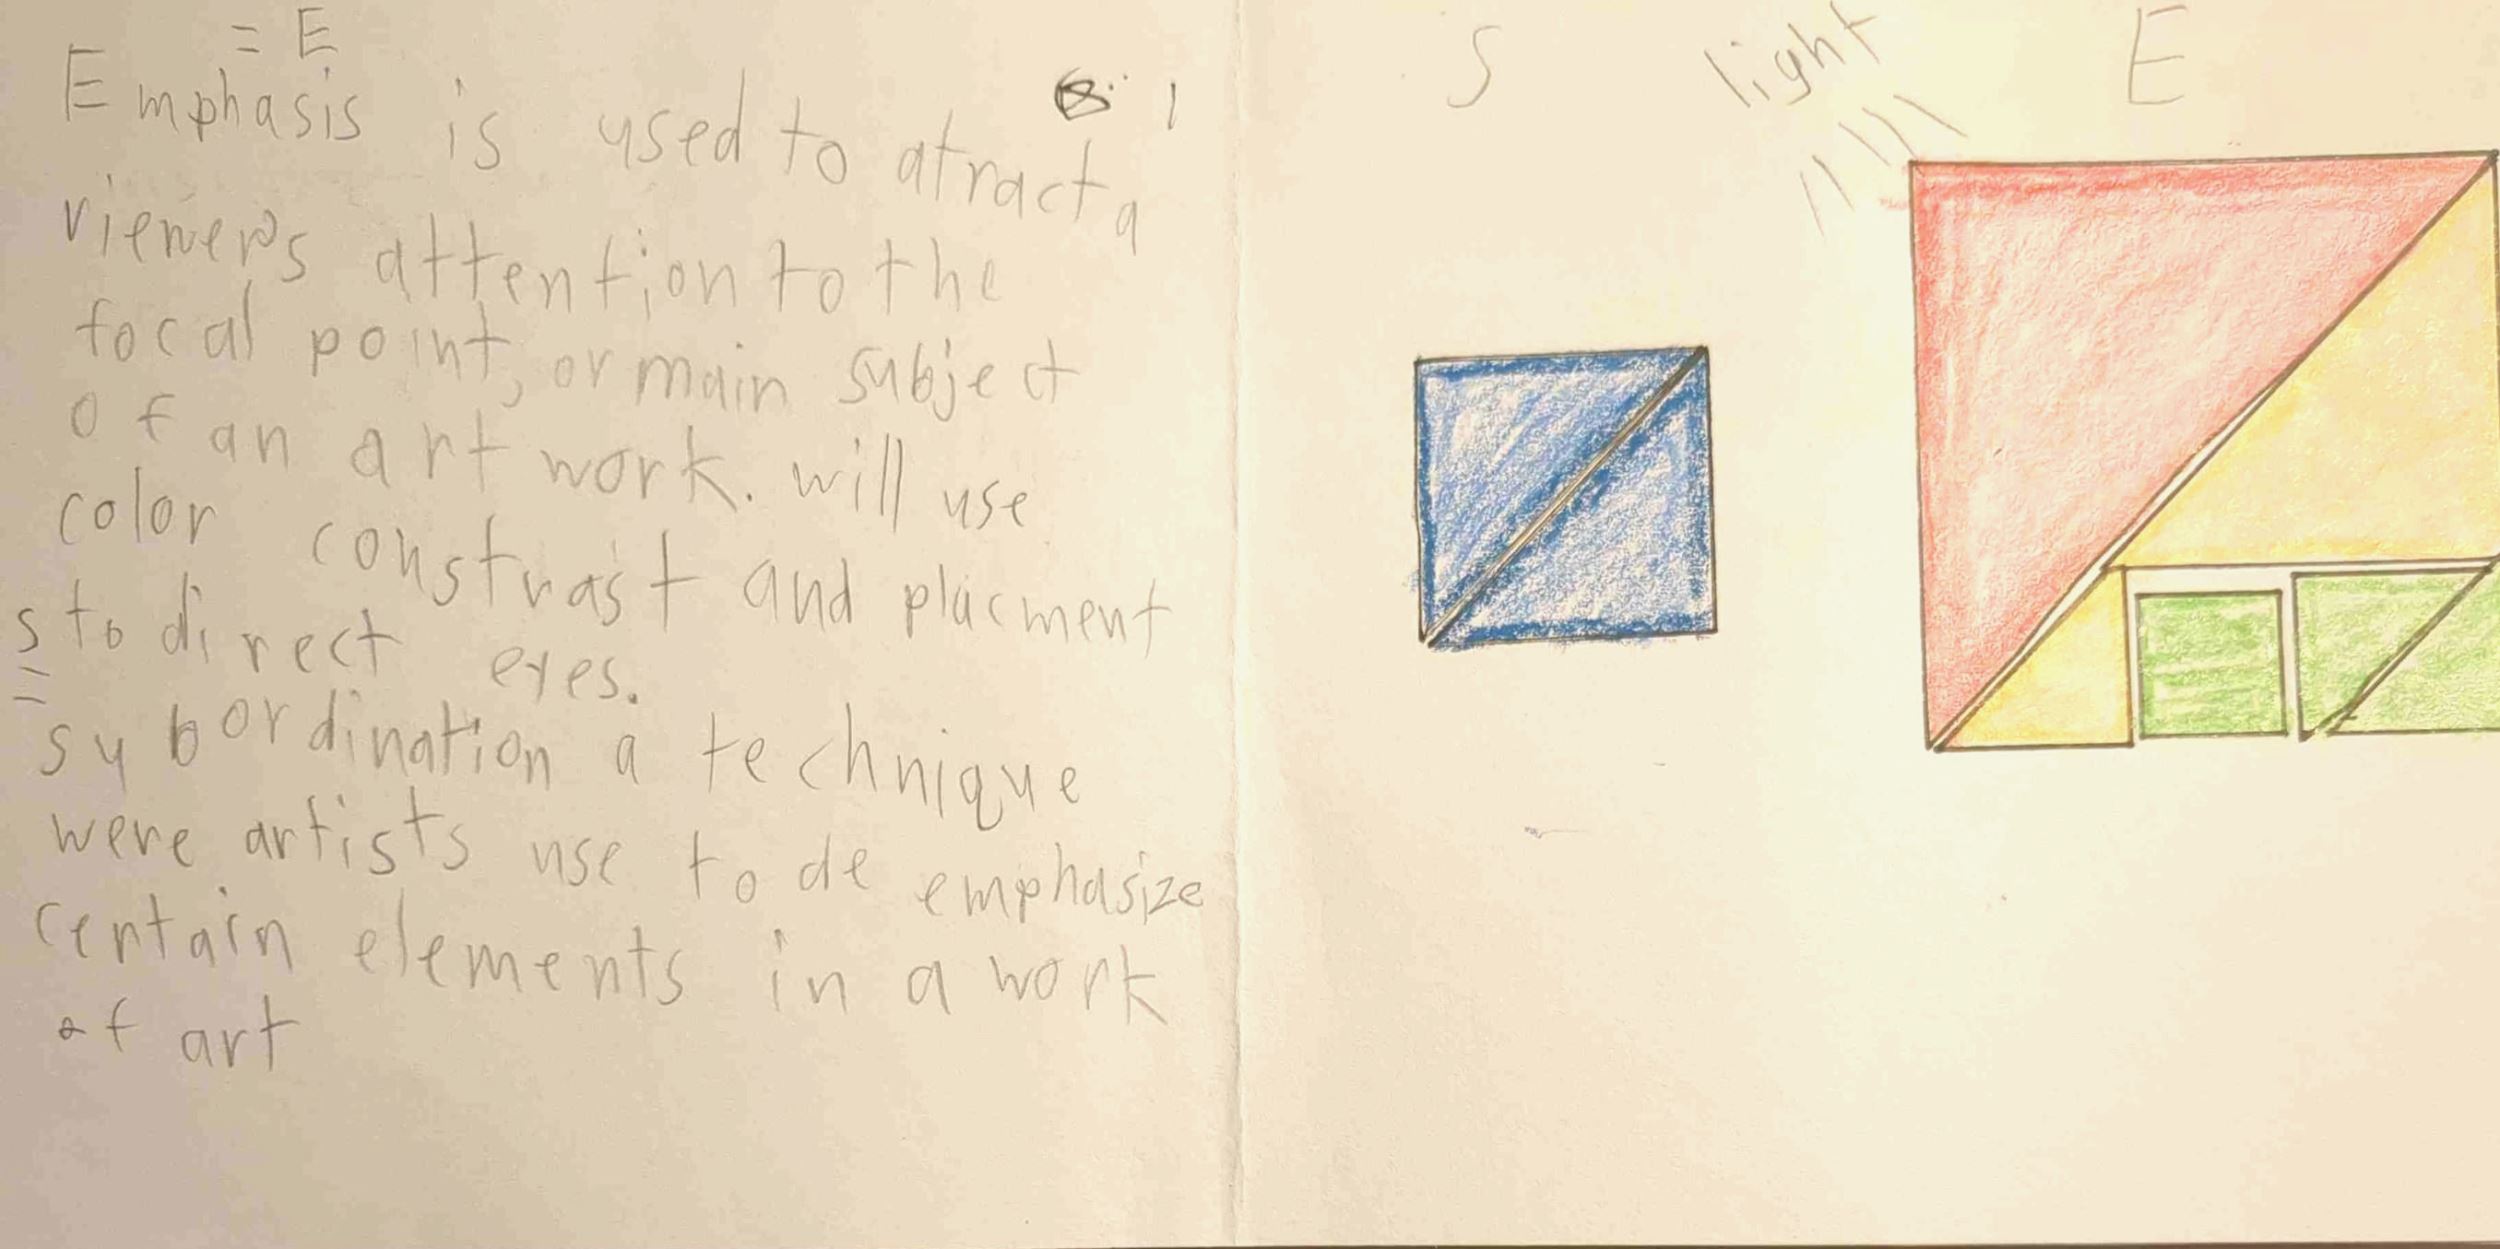 = E
Emphasis is used to atract a
viewers attention to the
focal point, or main subject
of an art work. will use
color constrast and placment
s to direct eyes.
=
sybordination a technique
were artists use to de emphasize
certain elements in a work
of art
S
light
E